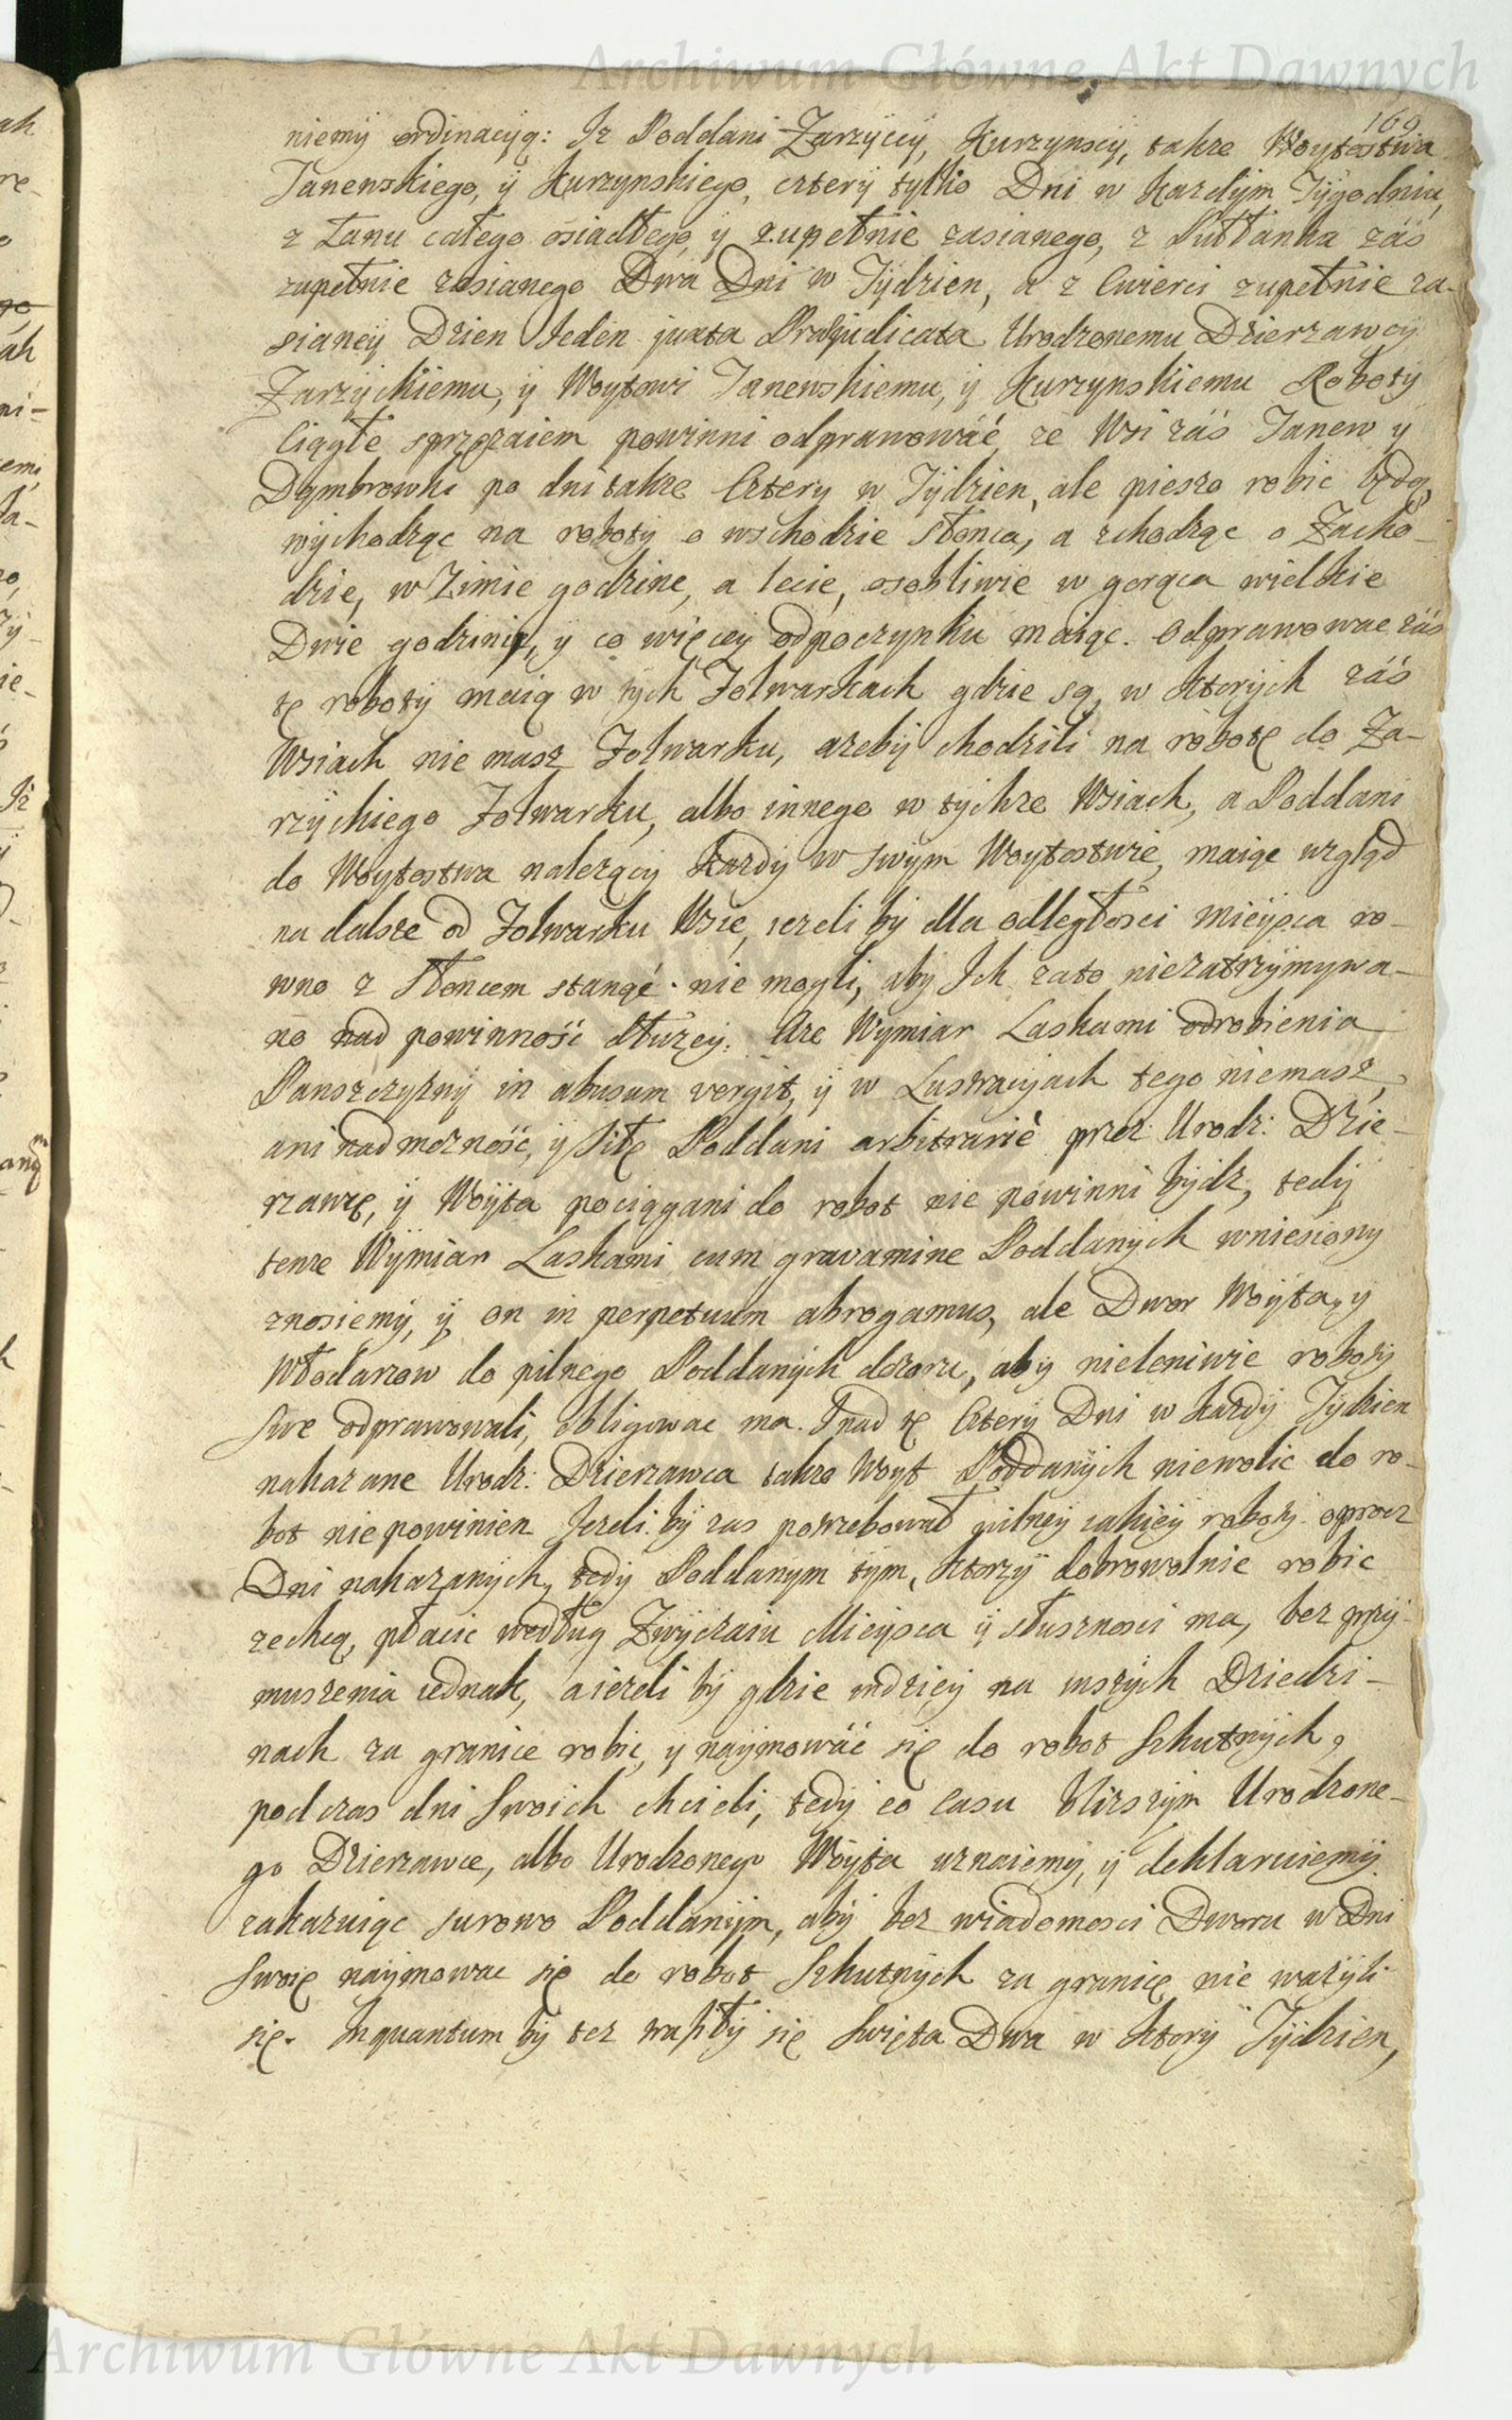 Archiwum Główne Akt Dawnych
169
niemÿ ordinacÿą: Iz Poddani Zarzÿccÿ, Kurzÿnscÿ, takze Woytostwa
Janewskiego, ÿ Kurzynskiego, czterÿ tylko Dni w Kazdÿm Tÿgodniu,
z Łanu całego osiadłego, ÿ zupełnie zasianego, z Pułłanka záś
zupełnie zasianego Dwa Dni w Tÿdzien, a z Cwierci zupełnie za-
sianeÿ Dzien Jeden juxta Præjudicata Urodzonemu Dzierzawcÿ
Zarzÿckiemu, ÿ Woytowi Janewskiemu, ÿ Kurzynskiemu Robotÿ
Ciągłe sprzęzaiem powinni odprawowáć ze Wsi záś Janew y
Dąmbrowki po dni takze Cztery w Tÿdzien, ale pieszo robic będą,
wÿchodząc na robotÿ o wschodzie słonca, a zchodząc o Zacho-
dzie, w Zimie godzine, a lecie, osobliwie w gorąca wielkie
Dwie godzinÿ, ÿ co więceÿ odpoczynku maiąc. Odprawowac záś
tę robotÿ maią w tÿch Folwarkach gdzie są, w Ktorÿch záś
Wsiach nie masz Folwarku, azebÿ chodzili na robotę do Za-
rzÿckiego Folwarku, albo innego w tÿchze Wsiach, a Poddani
do Woytostwa nalezącÿ kazdÿ w swÿm Woytostwie, maiąc wzgląd
na dalsze od Folwarku Wsie, iezeli bÿ dla odległosci mieÿsca ro-
wno z słoncem stanąć nie mogli, abÿ Ich zato niezatrzÿmywa-
no nad powinność dłuzeÿ. Aze Wymiar Laskami odrobienia
Panszczyznÿ in abusum vergit, ÿ w Lustracÿach tego niemasz,
ani nad mozność, ÿ siłę Poddani arbitrariè przez Urodz: Dzie-
rzawcę, ÿ Woÿta pociągani do robot nie powinni bÿdz, tedÿ
tenze Wÿmiar Laskami cum gravamine Poddanÿch wniesiony
znosiemÿ, ÿ on in perpetuum abrogamus, ale Dwor Woÿta, y
Włodarzow do pilnego Poddanÿch dozoru, abÿ nieleniwie robotÿ
swe odprawowali, obligowac ma. Nad tę Czterÿ Dni w kazdÿ Tÿdzien
nakazane Urodz: Dzierzawca takze Woyt Poddanÿch niewolic do ro-
bot nie powinien. Jezeli bÿ zas potrzebował pilneÿ iakieÿ robotÿ oprocz
Dni nakazanÿch, tedÿ Poddanym tÿm, ktorzÿ dobrowolnie robic
zechcą, płacic według Zwÿczaiu Mieÿsca ÿ słusznosci ma, bez przÿ-
muszenia iednak, a iezeli bÿ gdzie indzieÿ na inszÿch Dziedzi-
nach za granice robic, ÿ naÿmowáć się do robot szkutnÿch,
podczas dni swoich chcieli, tedÿ eo casu blizszÿm Urodzone-
go Dzierzawce, albo Urodzonego Woÿta uznaiemÿ, ÿ deklaruiemÿ
zakazuiąc surowo Poddanÿm, abÿ bez wiadomosci Dworu w Dni
swoię naÿmowac się do robot szkutnÿch za granicę nie wazÿli
się. Inquantum bÿ tez trafiłÿ się Swięta Dwa w ktorÿ Tÿdzien,
Archiwum Główne Akt Dawnych